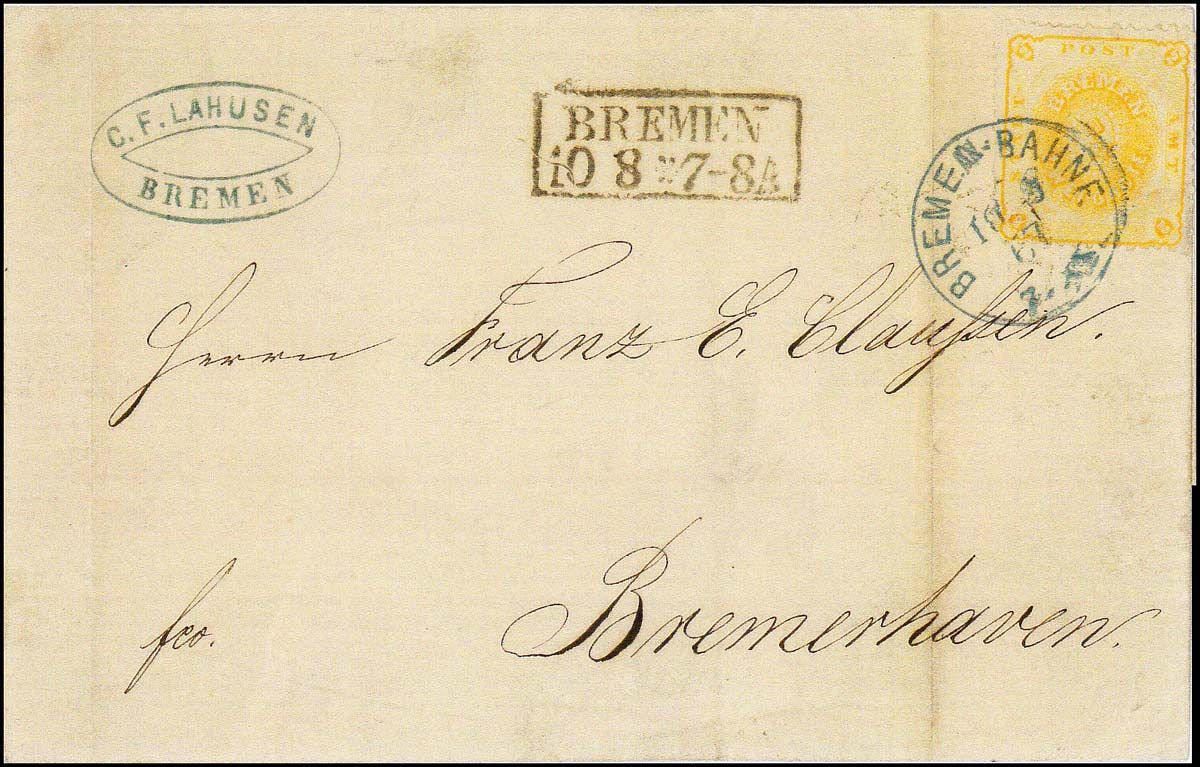 C. F. LAHUSEN
BREMEN
BREMEN
10 8 7-8A
POST
BREMEN
AMT
BREMEN-BAHNF
10 8
67
Herrn Franz E. Claussen.
fco. Bremerhaven.